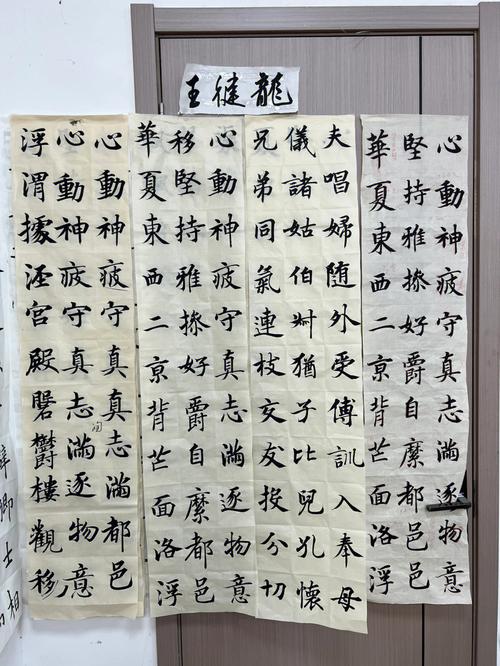 王徤龍
心動神疲守真志滿逐物意
堅持雅操好爵自縻都邑
華夏東西二京背芒面洛浮
夫唱婦随外受傅訓入奉母
儀諸姑伯叔猶子比兒孔懷
兄弟同氣連枝交友投分切
心動神疲守真志滿逐物意
移堅持雅操好爵自縻都邑
華夏東西二京背芒面洛浮
心動神疲守真真志滿都邑
心動神疲守真志滿逐物意
浮渭據涇宮殿磐鬱樓觀移
卿士相